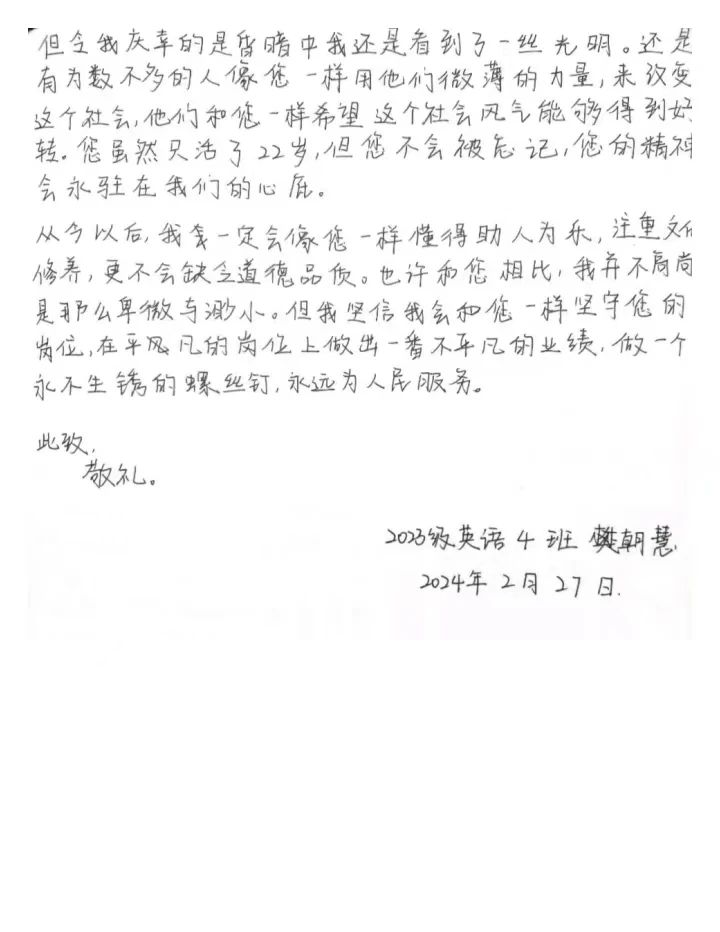 但令我庆幸的是昏暗中我还是看到了一丝光明。还是
有为数不多的人像您一样用他们微薄的力量,来改变
这个社会,他们和您一样希望这个社会风气能够得到好
转。您虽然只活了22岁,但您不会被忘记,您的精神
会永驻在我们的心底。
从今以后,我一定会像您一样懂得助人为乐,注重文化
修养,更不会缺乏道德品质。也许和您相比,我并不高尚
是那么卑微与渺小。但我坚信我会和您一样坚守您的
岗位,在平凡的岗位上做出一番不平凡的业绩,做一个
永不生锈的螺丝钉,永远为人民服务。
此致,
敬礼。
2023级英语4班 樊朝慧
2024年2月27日.